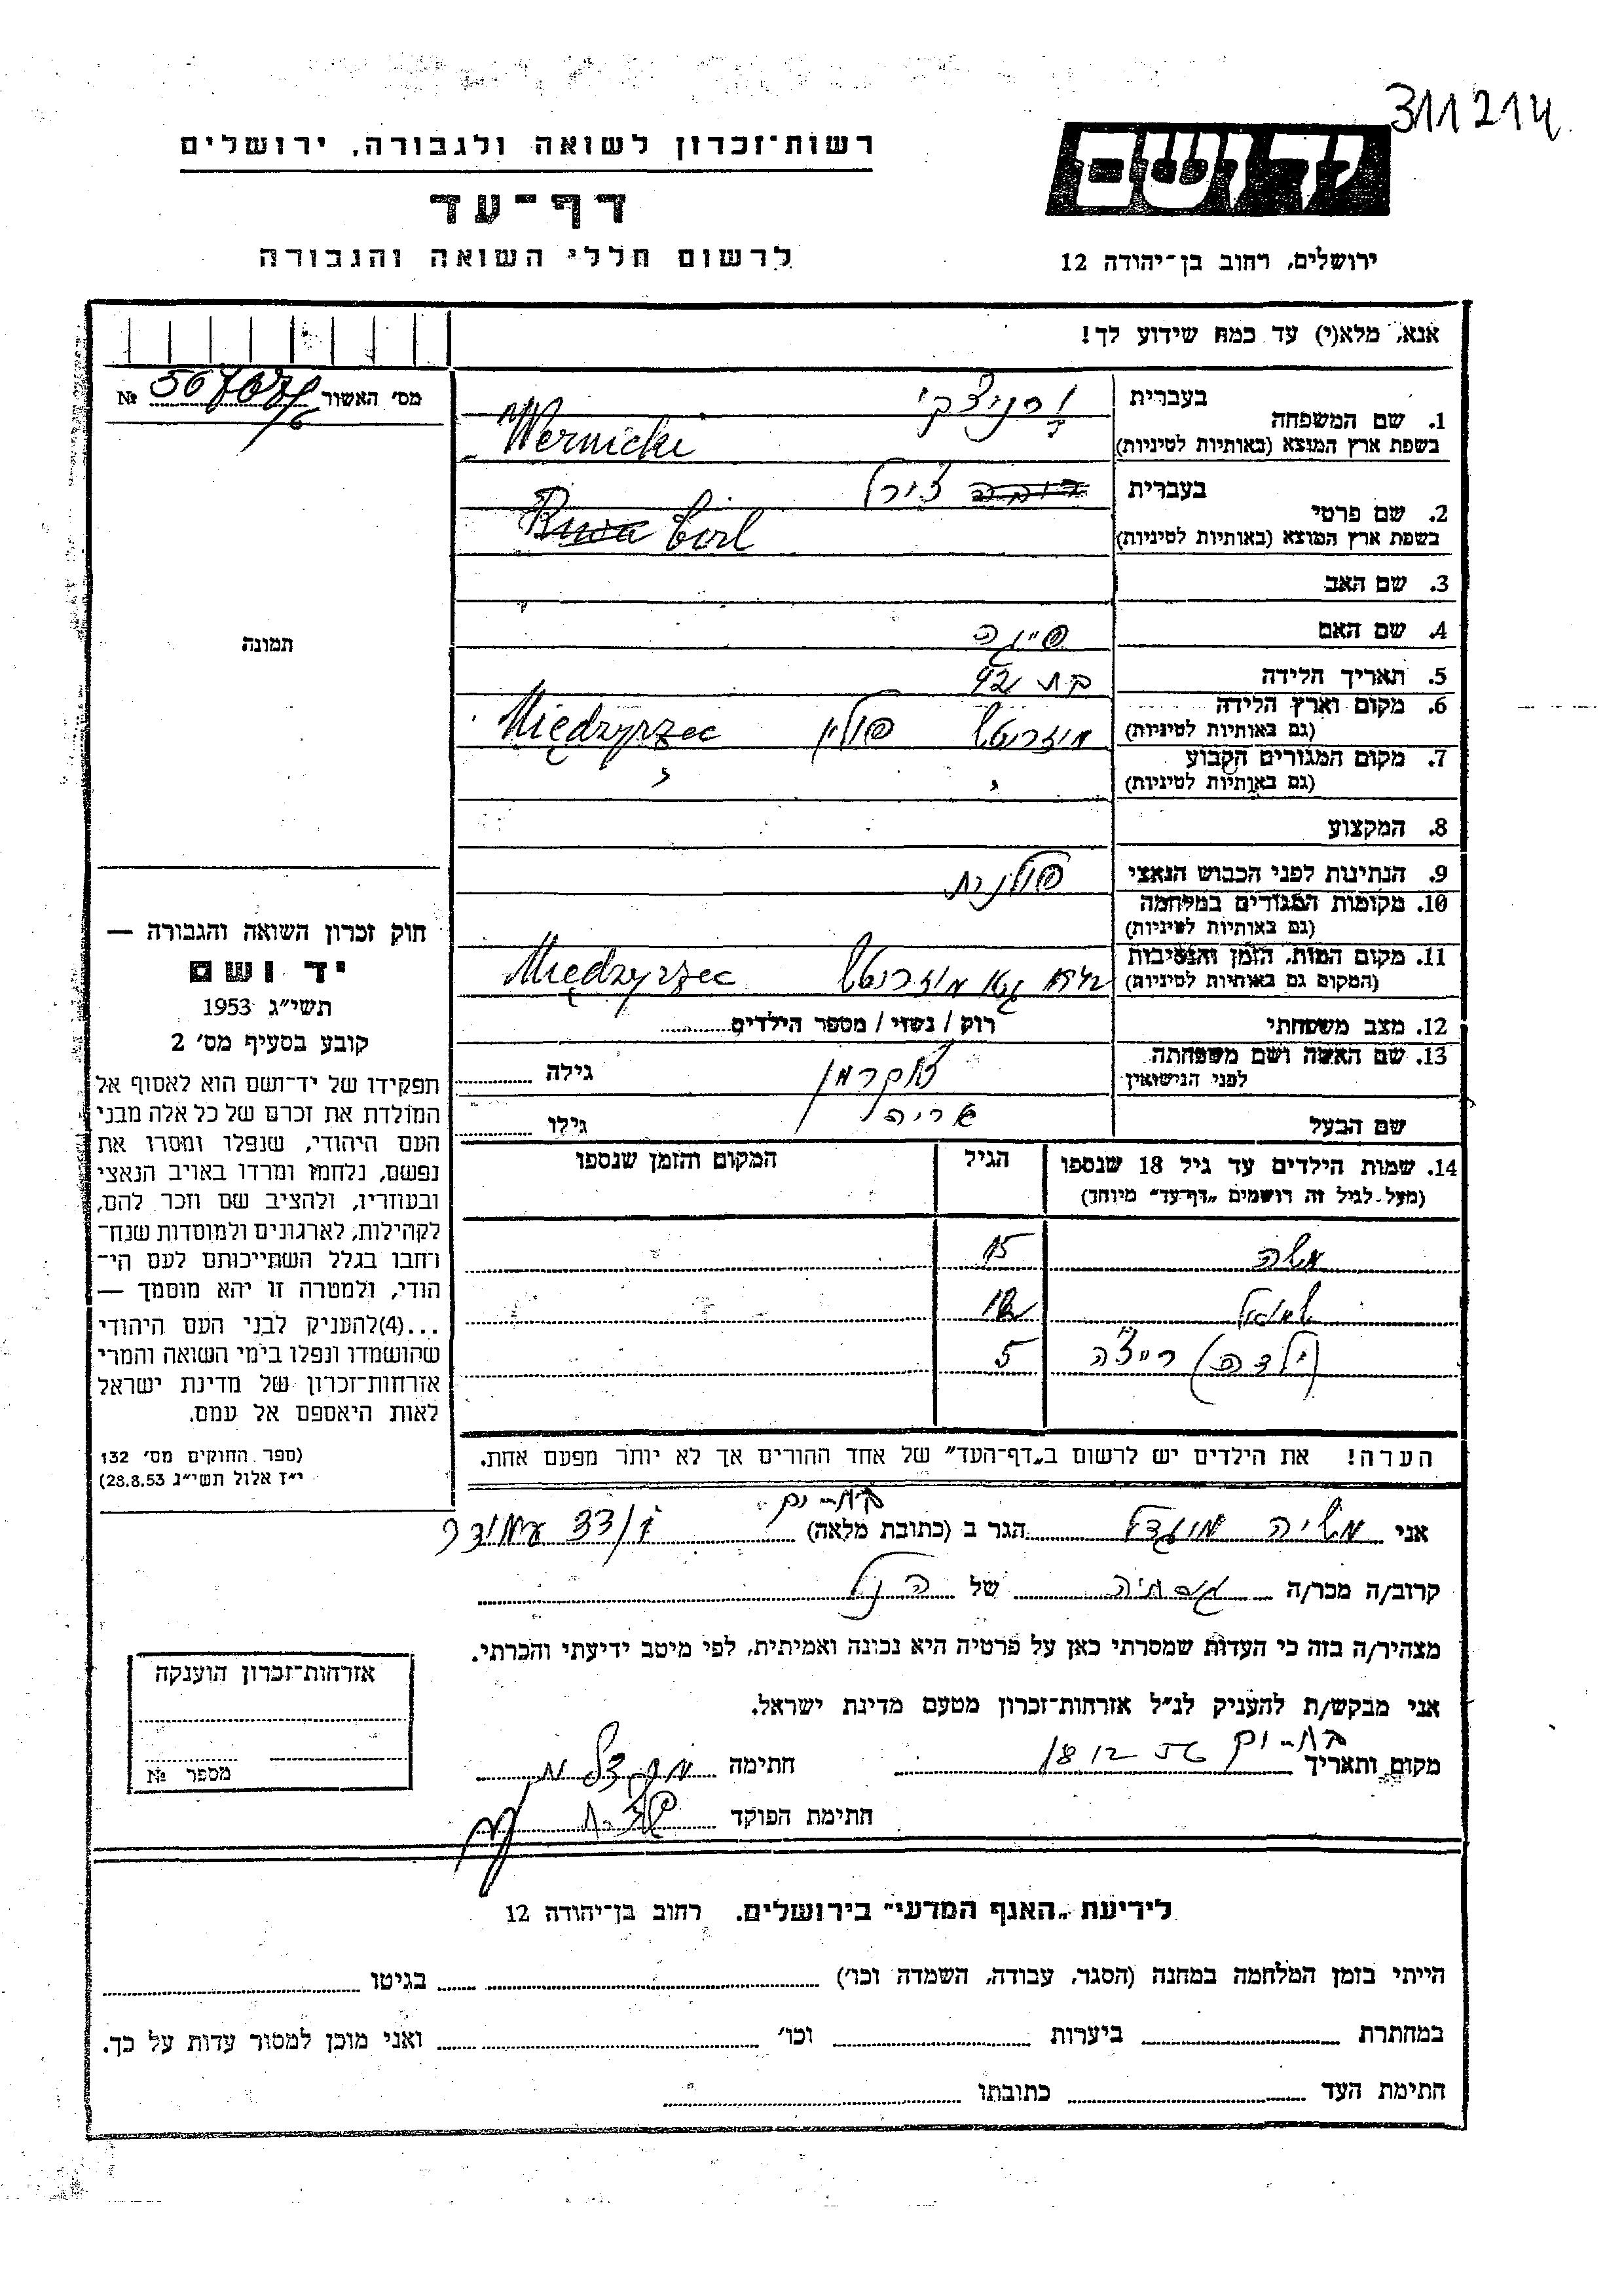 311214
רשות־זכרון לשואה ולגבורה, ירושלים
יד ושם
דף־עד
לרשום חללי השואה והגבורה
ירושלים, רחוב בן־יהודה 12
אנא, מלא(י) עד כמה שידוע לך!
מס׳ האשור № 
1. שם המשפחה
בעברית ורניצקי
בשפת ארץ המוצא (באותיות לטיניות) Wernicki
2. שם פרטי
בעברית צירל
בשפת ארץ המוצא (באותיות לטיניות) Cirl
3. שם האב
4. שם האם פייגה
5. תאריך הלידה בת 42
6. מקום וארץ הלידה (גם באותיות לטיניות) מזריטש פולין Międzyrzec
7. מקום המגורים הקבוע (גם באותיות לטיניות) " "
8. המקצוע
9. הנתינות לפני הכבוש הנאצי פולנית
10. מקומות המגורים במלחמה (גם באותיות לטיניות)
11. מקום המות, הזמן והנסיבות (המקום גם באותיות לטיניות) מזריטש Międzyrzec
12. מצב משפחתי רווק / נשוי / מספר הילדים
13. שם האשה ושם משפחתה לפני הנישואין צוקרמן גילה
שם הבעל אריה גילו
14. שמות הילדים עד גיל 18 שנספו (מעל לגיל זה רושמים „דף־עד״ מיוחד) הגיל המקום והזמן שנספו
משה 15
שמואל 12
(ילדה) רייצה 5
הערה! את הילדים יש לרשום ב„דף־העד״ של אחד ההורים אך לא יותר מפעם אחת.
תמונה
חוק זכרון השואה והגבורה —
יד ושם
תשי״ג 1953
קובע בסעיף מס׳ 2
תפקידו של יד־ושם הוא לאסוף אל
המולדת את זכרם של כל אלה מבני
העם היהודי, שנפלו ומסרו את
נפשם, נלחמו ומרדו באויב הנאצי
ובעוזריו, ולהציב שם וזכר להם,
לקהילות, לארגונים ולמוסדות שנח־
רחבו בגלל השתייכותם לעם הי־
הודי, ולמטרה זו יהא מוסמך —
...(4) להעניק לבני העם היהודי
שהושמדו ונפלו בימי השואה והמרי
אזרחות־זכרון של מדינת ישראל
לאות היאספם אל עמם.
(ספר החוקים מס׳ 132
י״ז אלול תשי״ג 28.8.53)
בת-ים
אני מגדל הגר ב (כתובת מלאה) 33/
קרוב/ה מכר/ה של הנ"ל
מצהיר/ה בזה כי העדות שמסרתי כאן על פרטיה היא נכונה ואמיתית, לפי מיטב ידיעתי והכרתי.
אני מבקש/ת להעניק לנ״ל אזרחות־זכרון מטעם מדינת ישראל.
מקום ותאריך בת-ים 18 12 56 חתימה
חתימת הפוקד
אזרחות־זכרון הוענקה
מספר №
לידיעת „האגף המדעי״ בירושלים. רחוב בן־יהודה 12
הייתי בזמן המלחמה במחנה (הסגר, עבודה, השמדה וכו׳) בגיטו
במחתרת ביערות וכו׳ ואני מוכן למסור עדות על כך.
חתימת העד כתובתו